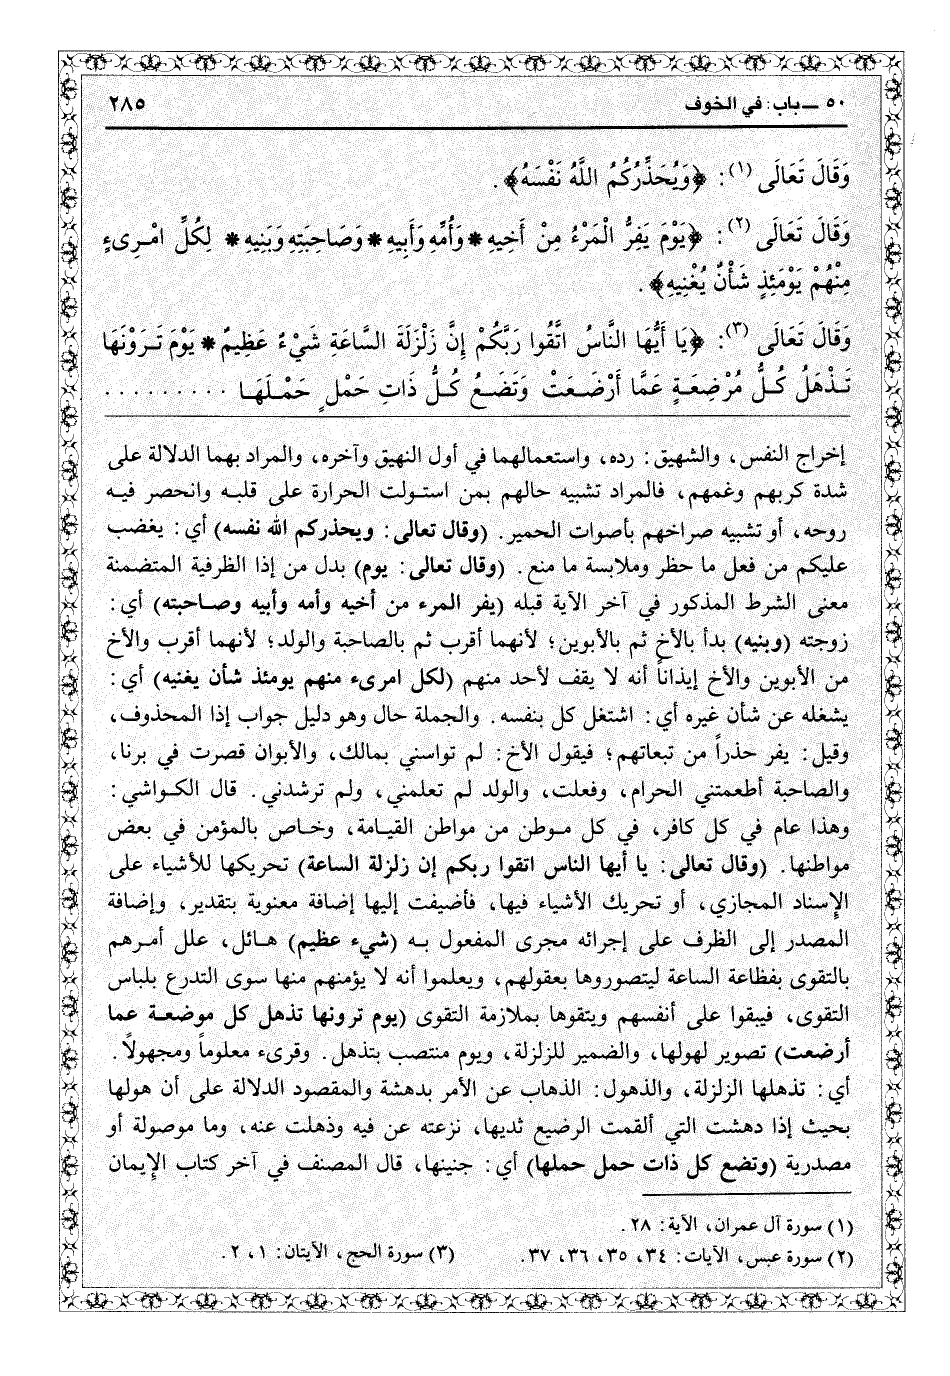 ٥٠ ــ باب: في الخوف ٢٨٥
وَقَالَ تَعَالَى (١): ﴿وَيُحَذِّرُكُمُ اللَّهُ نَفْسَهُ﴾.
وَقَالَ تَعَالَى (٢): ﴿يَوْمَ يَفِرُّ الْمَرْءُ مِنْ أَخِيهِ * وَأُمِّهِ وَأَبِيهِ * وَصَاحِبَتِهِ وَبَنِيهِ * لِكُلِّ امْرِىءٍ
مِنْهُمْ يَوْمَئِذٍ شَأْنٌ يُغْنِيهِ﴾.
وَقَالَ تَعَالَى (٣): ﴿يَا أَيُّهَا النَّاسُ اتَّقُوا رَبَّكُمْ إِنَّ زَلْزَلَةَ السَّاعَةِ شَيْءٌ عَظِيمٌ * يَوْمَ تَرَوْنَهَا
تَذْهَلُ كُلُّ مُرْضِعَةٍ عَمَّا أَرْضَعَتْ وَتَضَعُ كُلُّ ذَاتِ حَمْلٍ حَمْلَهَا . . . . . . . . .
إخراج النفس، والشهيق: رده، واستعمالهما في أول النهيق وآخره، والمراد بهما الدلالة على
شدة كربهم وغمهم، فالمراد تشبيه حالهم بمن استولت الحرارة على قلبه وانحصر فيه
روحه، أو تشبيه صراخهم بأصوات الحمير. (وقال تعالى: ويحذركم الله نفسه) أي: يغضب
عليكم من فعل ما حظر وملابسة ما منع. (وقال تعالى: يوم) بدل من إذا الظرفية المتضمنة
معنى الشرط المذكور في آخر الآية قبله (يفر المرء من أخيه وأمه وأبيه وصاحبته) أي:
زوجته (وبنيه) بدأ بالأخ ثم بالأبوين؛ لأنهما أقرب ثم بالصاحبة والولد؛ لأنهما أقرب والأخ
من الأبوين والأخ إيذاناً أنه لا يقف لأحد منهم (لكل امرىء منهم يومئذ شأن يغنيه) أي:
يشغله عن شأن غيره أي: اشتغل كل بنفسه. والجملة حال وهو دليل جواب إذا المحذوف،
وقيل: يفر حذراً من تبعاتهم؛ فيقول الأخ: لم تواسني بمالك، والأبوان قصرت في برنا،
والصاحبة أطعمتني الحرام، وفعلت، والولد لم تعلمني، ولم ترشدني. قال الكواشي:
وهذا عام في كل كافر، في كل موطن من مواطن القيامة، وخاص بالمؤمن في بعض
مواطنها. (وقال تعالى: يا أيها الناس اتقوا ربكم إن زلزلة الساعة) تحريكها للأشياء على
الإسناد المجازي، أو تحريك الأشياء فيها، فأضيفت إليها إضافة معنوية بتقدير، وإضافة
المصدر إلى الظرف على إجرائه مجرى المفعول به (شيء عظيم) هائل، علل أمرهم
بالتقوى بفظاعة الساعة ليتصوروها بعقولهم، ويعلموا أنه لا يؤمنهم منها سوى التدرع بلباس
التقوى، فيبقوا على أنفسهم ويتقوها بملازمة التقوى (يوم ترونها تذهل كل موضعة عما
أرضعت) تصوير لهولها، والضمير للزلزلة، ويوم منتصب بتذهل. وقرىء معلوماً ومجهولاً.
أي: تذهلها الزلزلة، والذهول: الذهاب عن الأمر بدهشة والمقصود الدلالة على أن هولها
بحيث إذا دهشت التي ألقمت الرضيع ثديها، نزعته عن فيه وذهلت عنه، وما موصولة أو
مصدرية (وتضع كل ذات حمل حملها) أي: جنينها، قال المصنف في آخر كتاب الإيمان
(١) سورة آل عمران، الآية: ٢٨.
(٢) سورة عبس، الآيات: ٣٤، ٣٥، ٣٦، ٣٧. (٣) سورة الحج، الآيتان: ١، ٢.